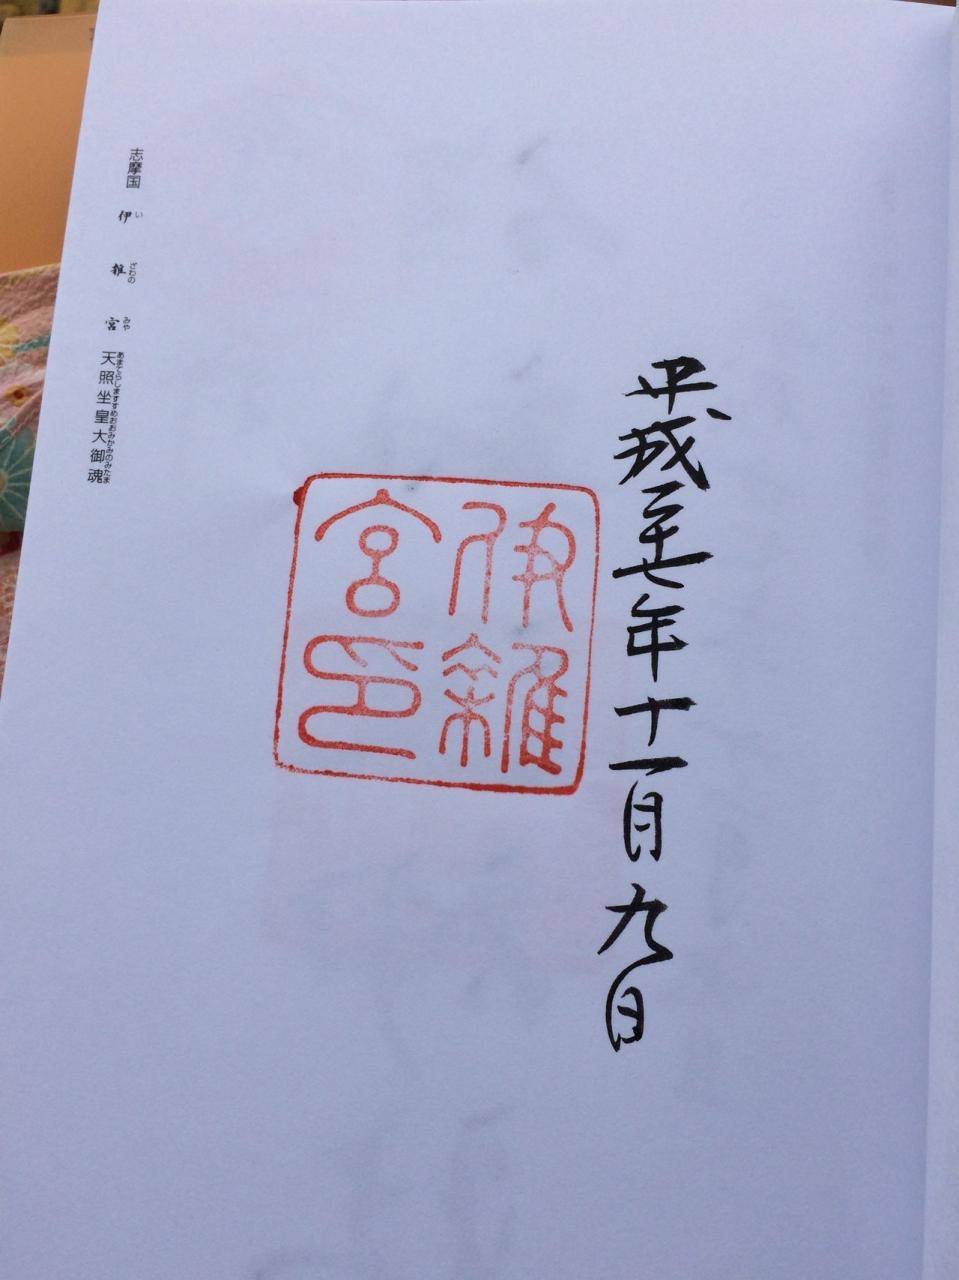 平成二十七年十一月九日
伊雜
宮印
志摩国 伊雜宮 天照坐皇大御魂
い ざわの みや あまてらしますすめおおみかみのみたま